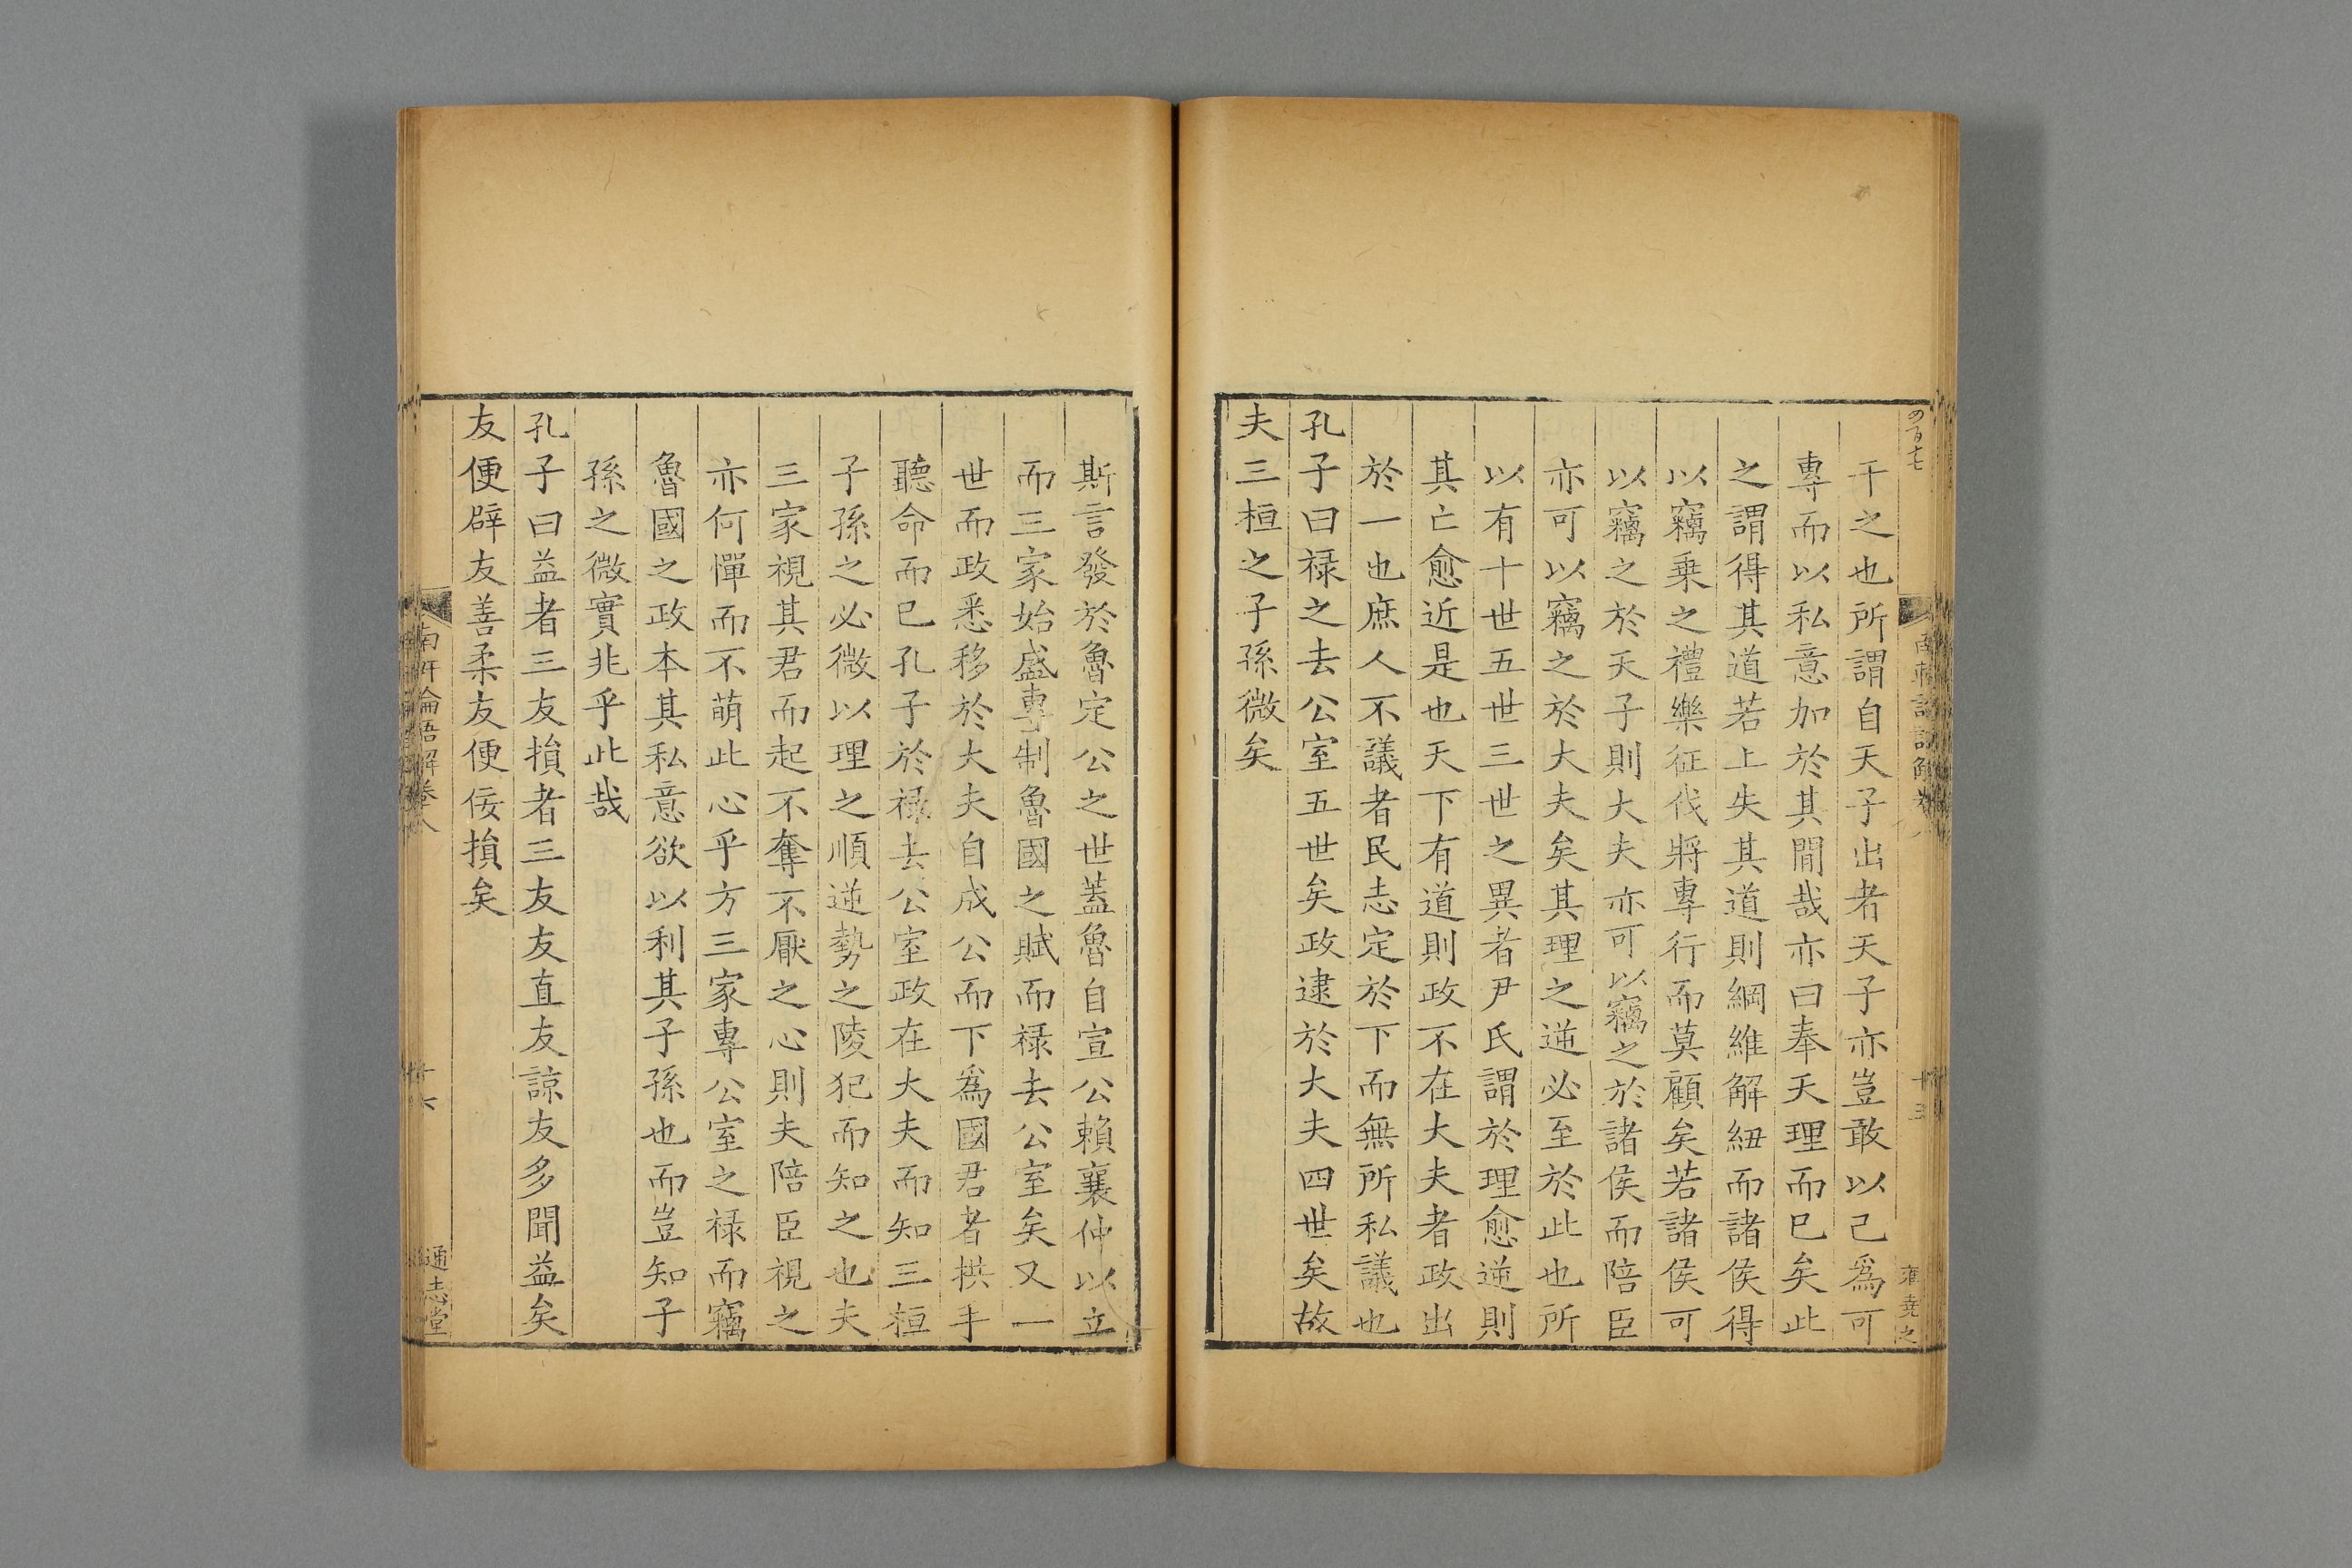 干之也所謂自天子出者天子亦豈敢以己爲可
專而以私意加於其間哉亦曰奉天理而已矣此
之謂得其道若上失其道則綱維解紐而諸侯得
以竊乗之禮樂征伐將專行而莫顧矣若諸侯可
以竊之於天子則大夫亦可以竊之於諸侯而陪臣
亦可以竊之於大夫矣其理之逆必至於此也所
以有十世五世三世之異者尹氏謂於理愈逆則
其亡愈近是也天下有道則政不在大夫者政出
於一也庶人不議者民志定於下而無所私議也
孔子曰禄之去公室五世矣政逮於大夫四世矣故
夫三桓之子孫微矣
斯言發於魯定公之世蓋魯自宣公賴襄仲以立
而三家始盛專制魯國之賦而禄去公室矣又一
世而政悉移於大夫自成公而下爲國君者拱手
聽命而已孔子於禄去公室政在大夫而知三桓
子孫之必微以理之順逆勢之陵犯而知之也夫
三家視其君而起不奪不厭之心則夫陪臣視之
亦何憚而不萌此心乎方三家專公室之禄而竊
魯國之政本其私意欲以利其子孫也而豈知子
孫之微實兆乎此哉
孔子曰益者三友損者三友友直友諒友多聞益矣
友便辟友善柔友便佞損矣
南軒論語解卷八
通志堂